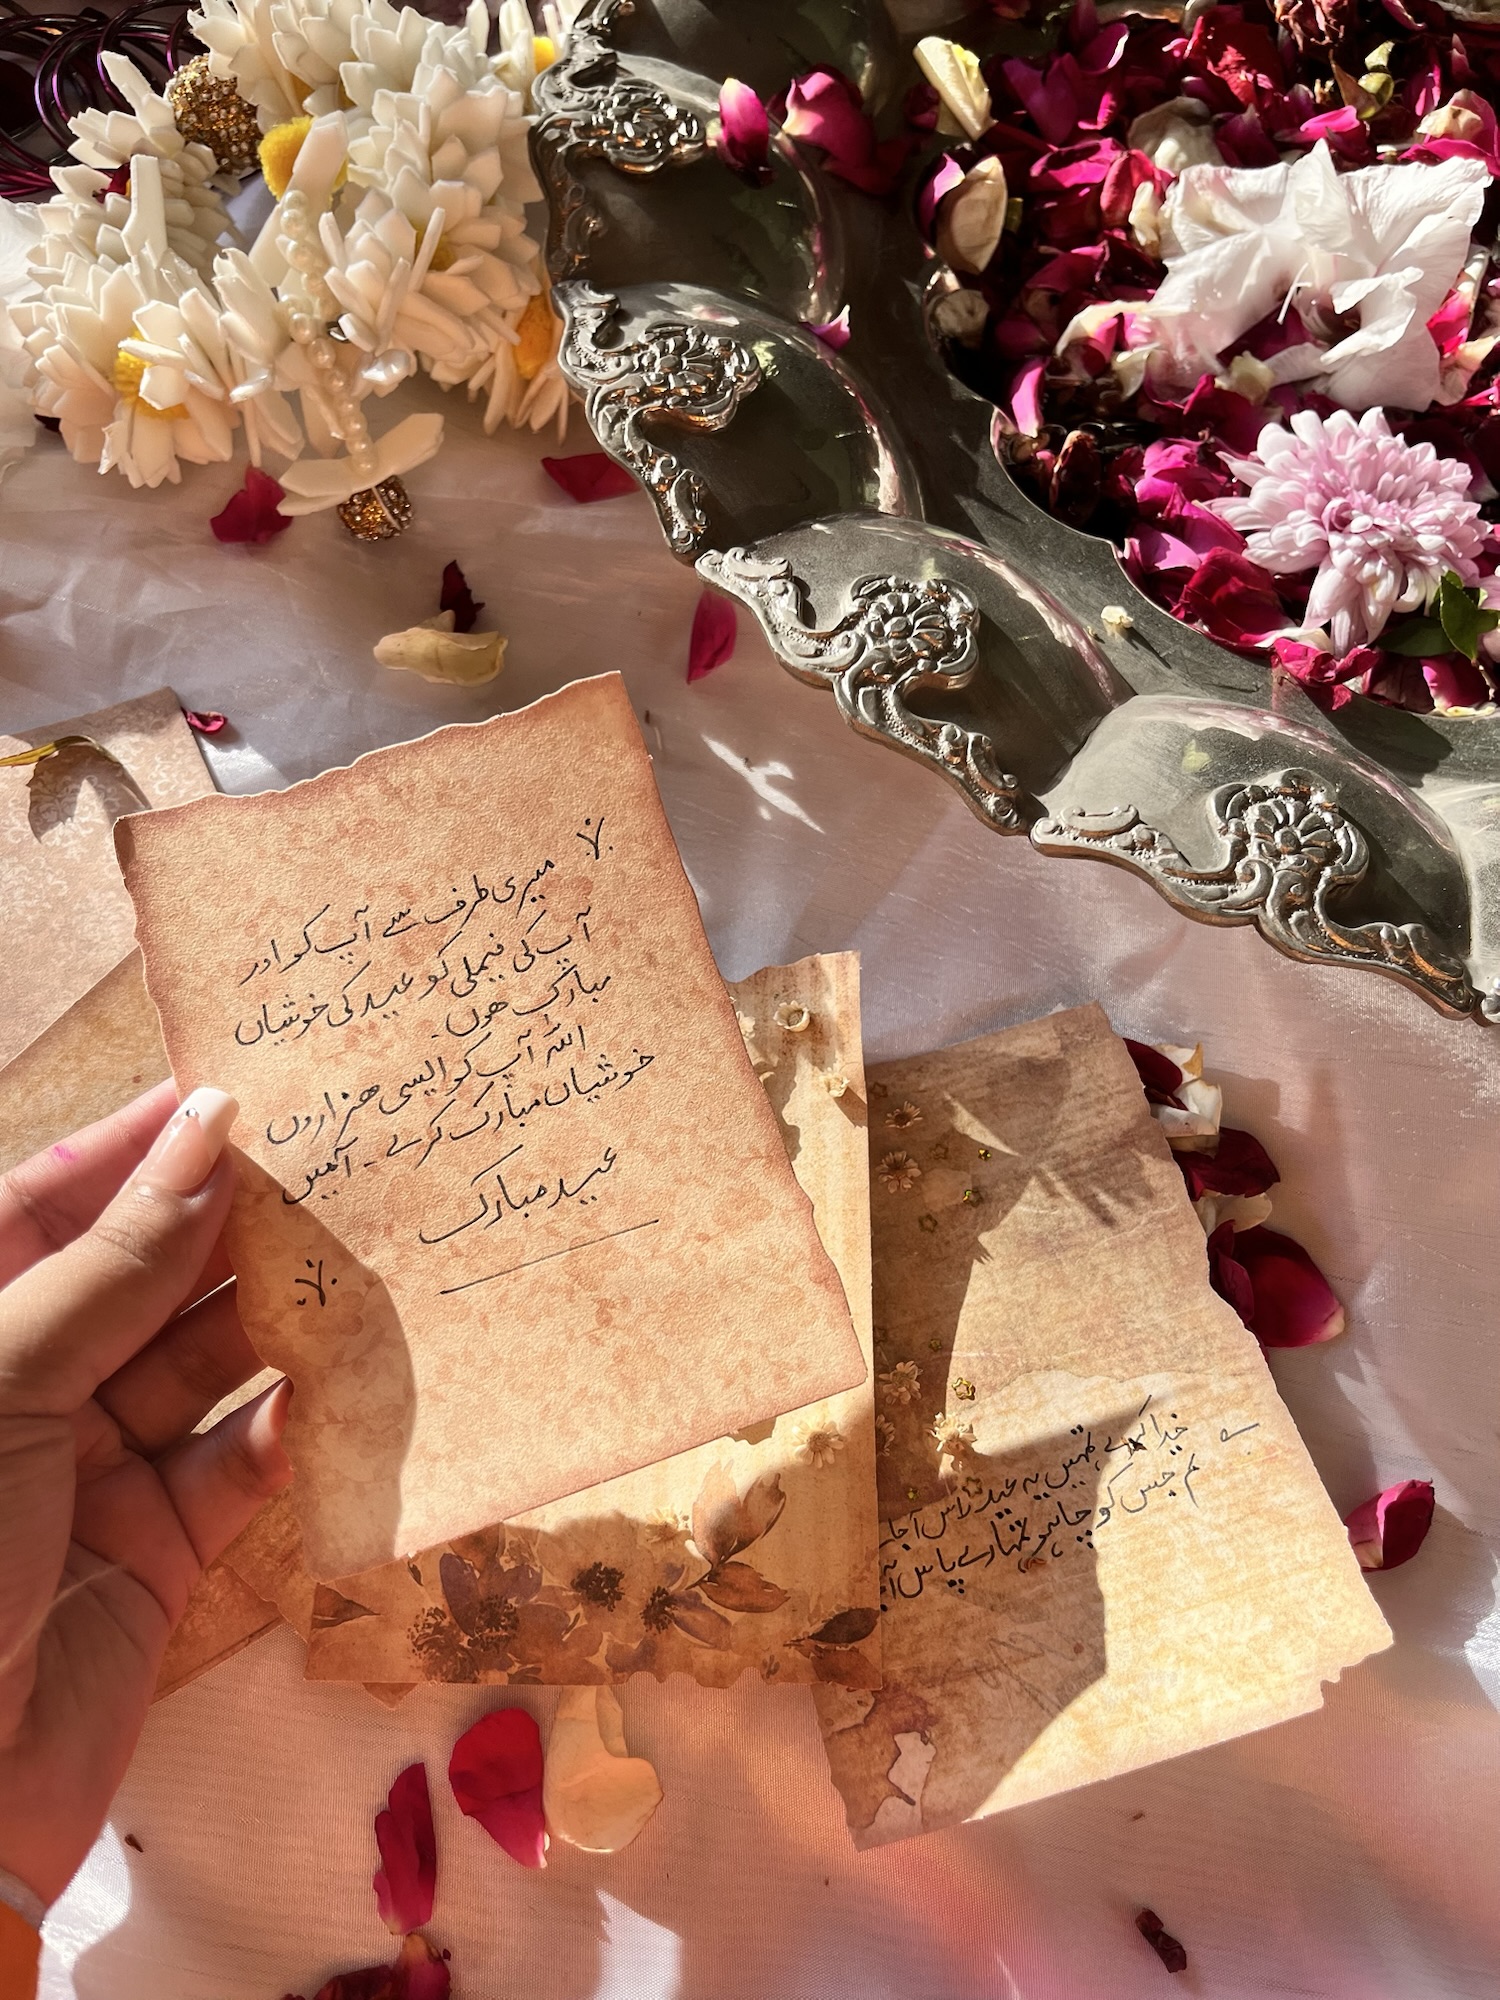 میری طرف سے آپ کو اور
آپ کی فیملی کو عید کی خوشیاں
مبارک ھوں۔
اللہ آپ کو ایسی ھزاروں
خوشیاں مبارک کرے۔ آمین
عید مبارک
خدا کرے تمہیں یہ عید راس آ جائے
تم جس کو چاہو تمہارے پاس آ